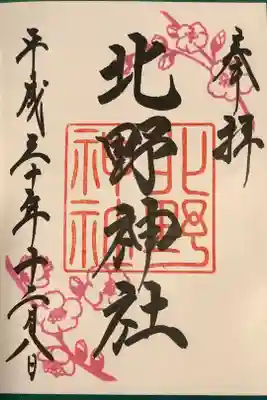 奉拝
北野神社
北野
神社
平成三十年十二月八日